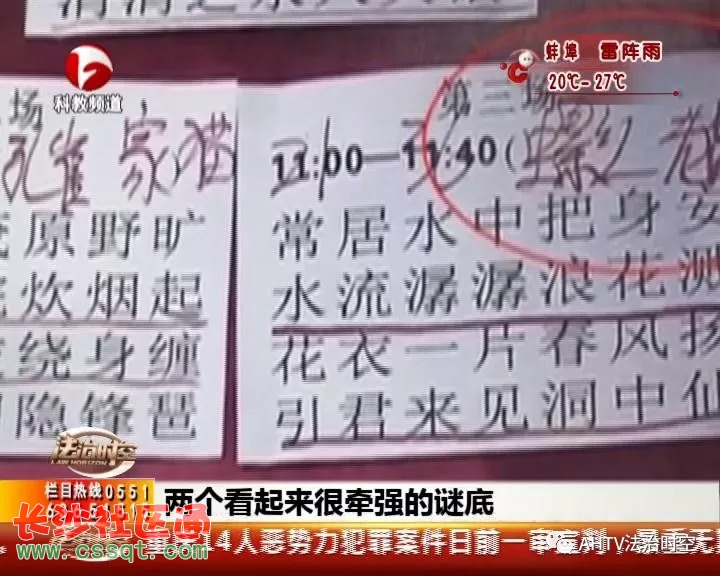 科教频道
蚌埠 雷阵雨
20℃-27℃
场
孔雀 家猫
原野旷
炊烟起
绕身缠
隐锋芭
第三场
11:00—11:40(
常居水中把身安
水流潺潺浪花溅
花衣一片春风扬
引君来见洞中仙
法治时空
LAW HORIZON
栏目热线0551
两个看起来很牵强的谜底
14人恶势力犯罪案件日前一审宣判
AHTV法治时空
长沙社区通
www.cssqt.com